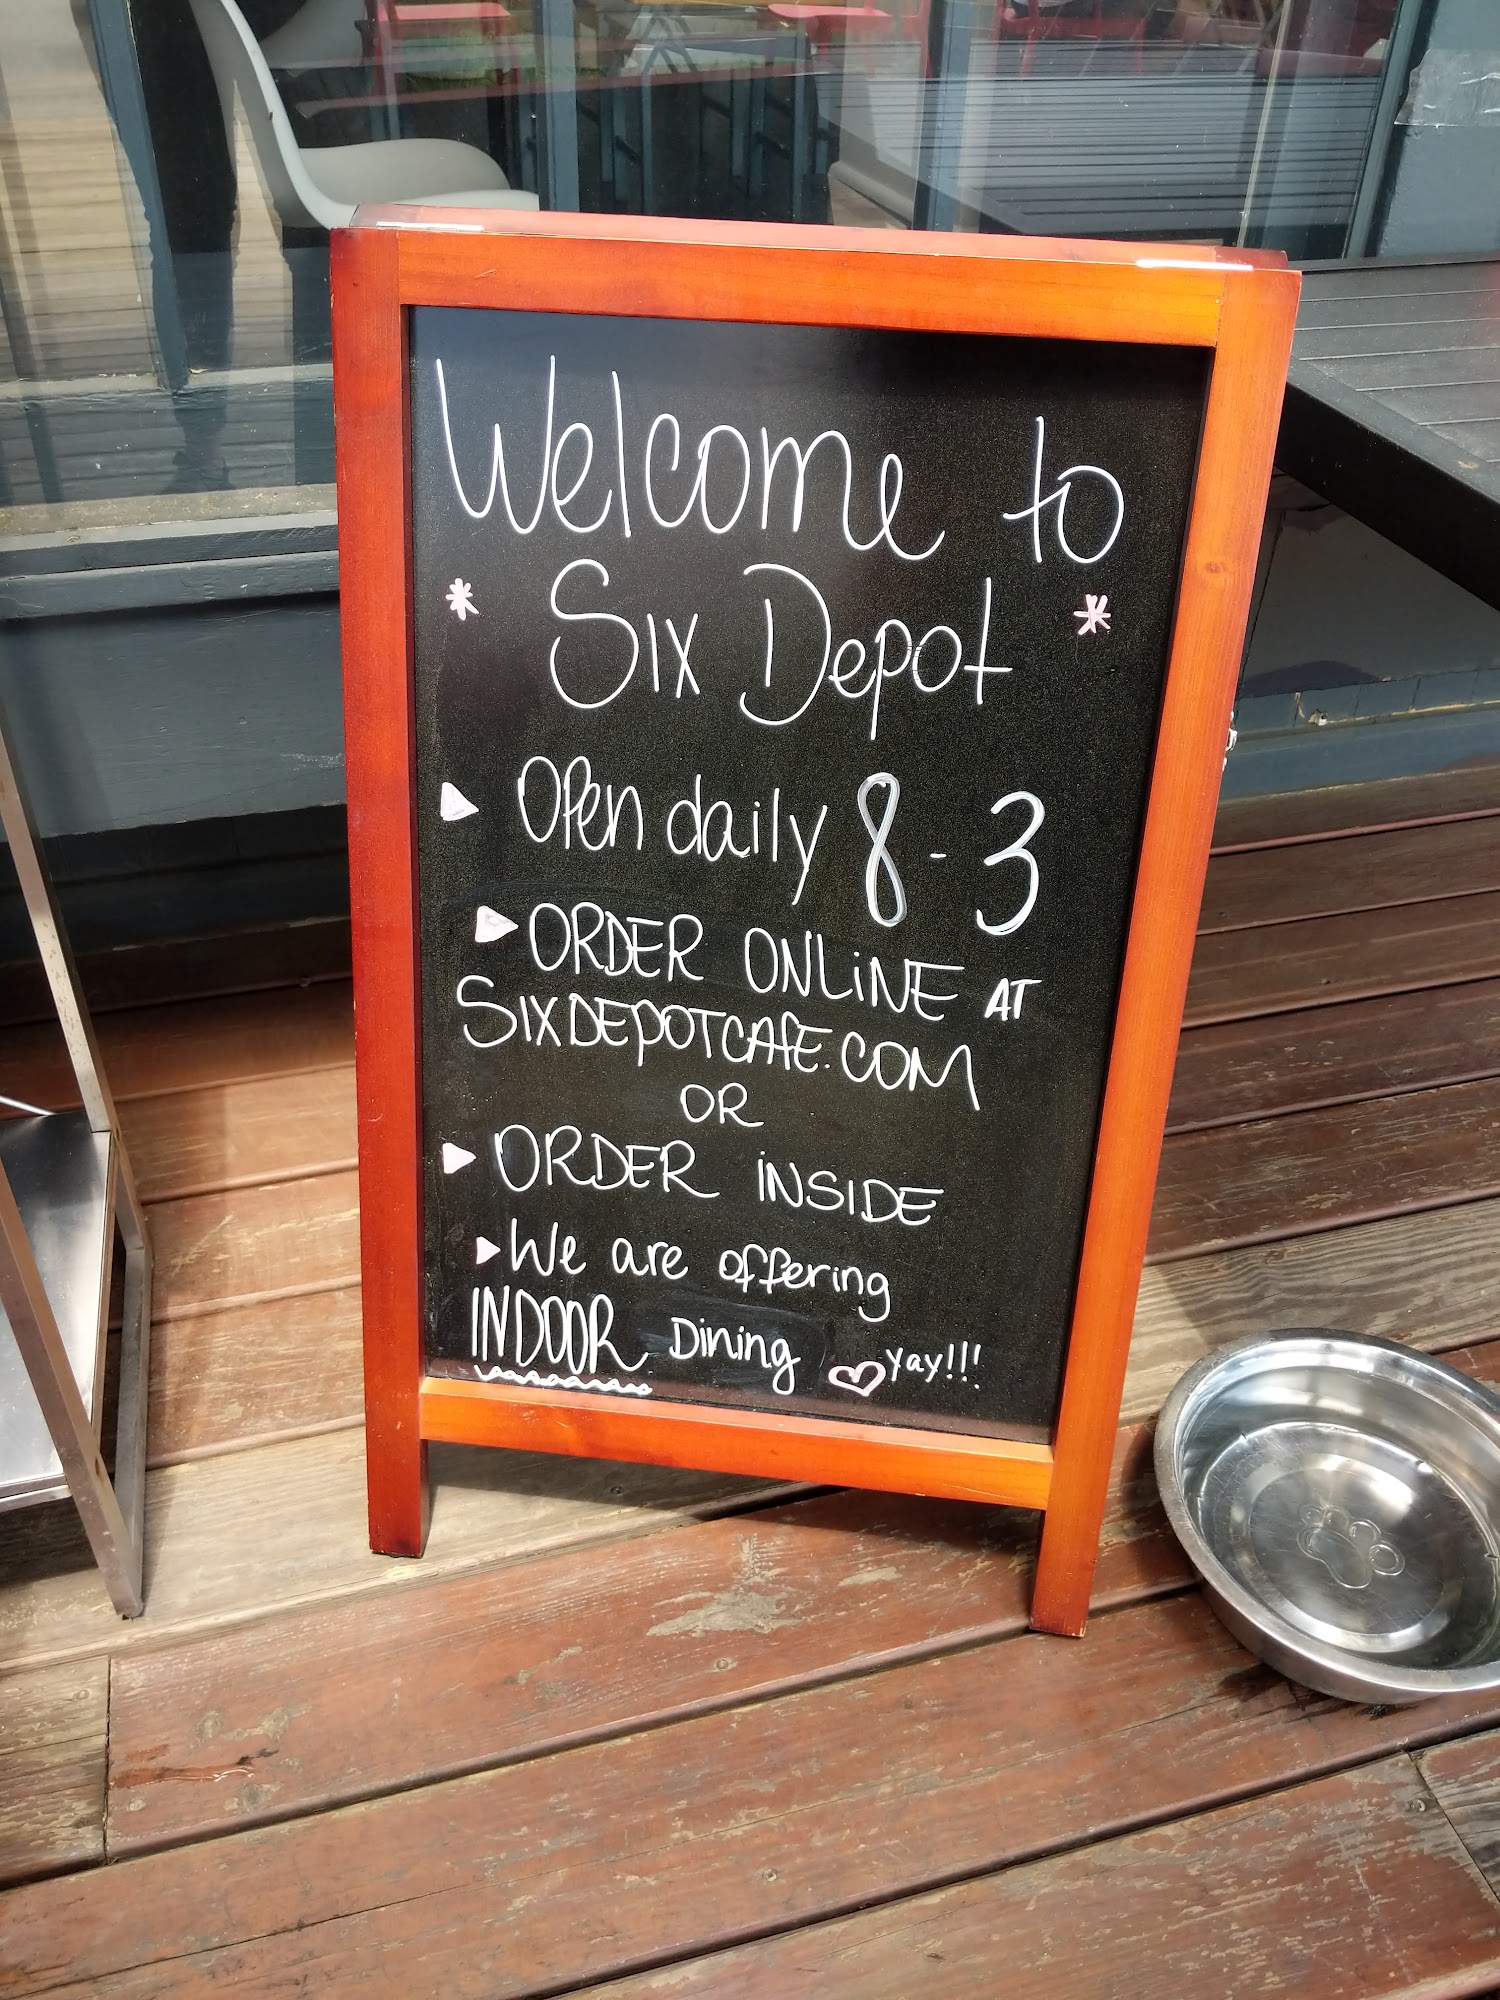 Welcome to
* Six Depot *
Open daily 8-3
ORDER ONLINE AT
SIXDEPOTCAFE.COM
OR
ORDER INSIDE
We are offering
INDOOR Dining yay!!!